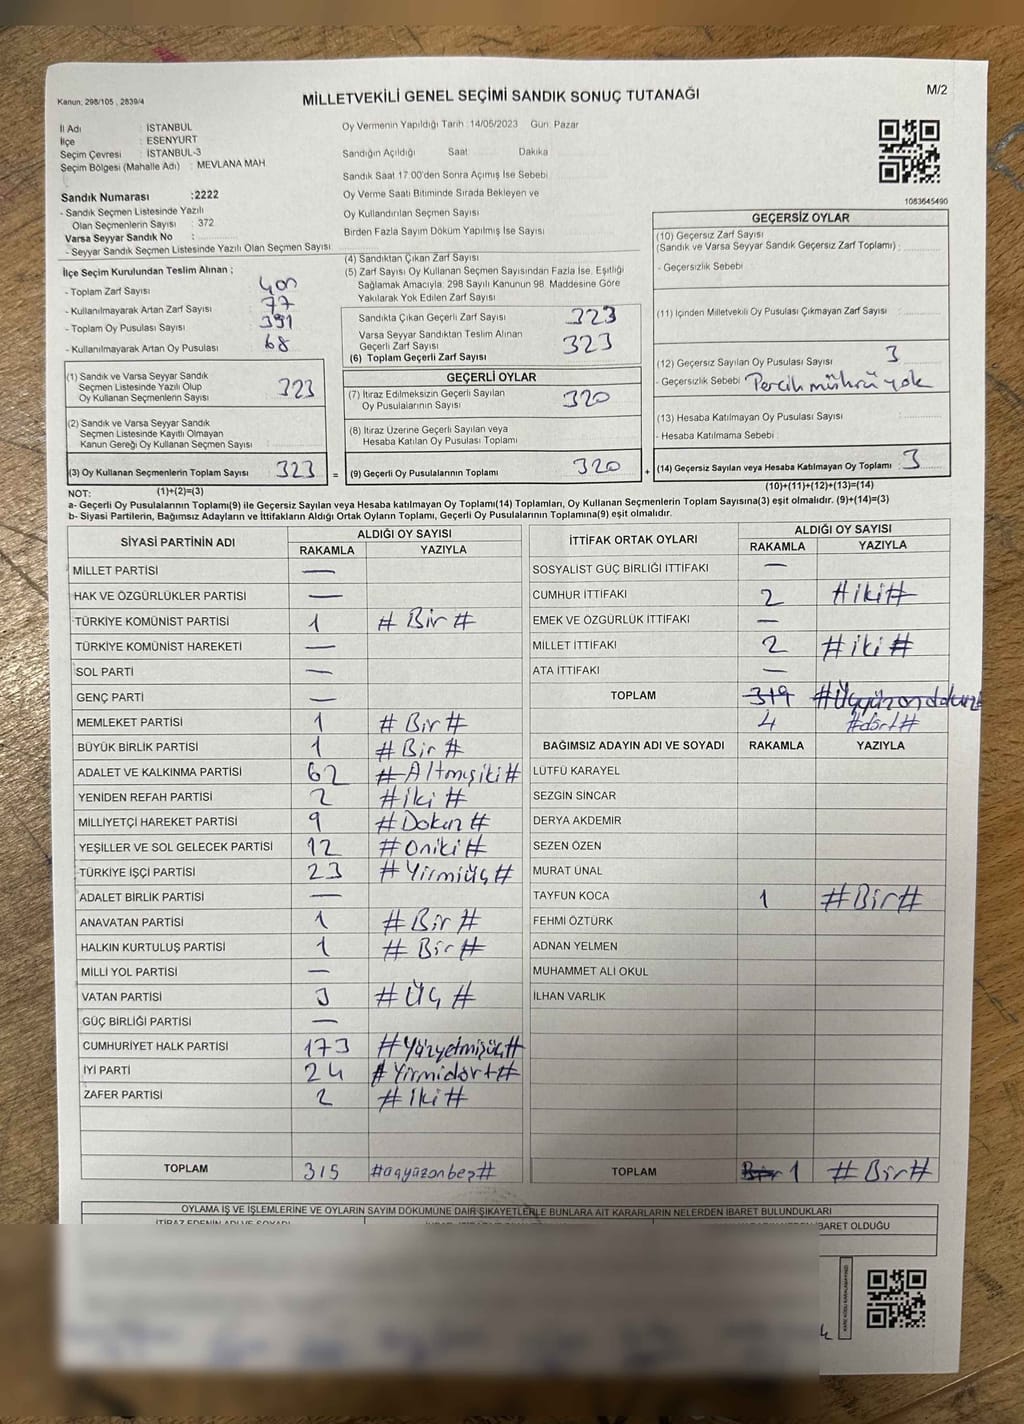 Kanun; 298/105 , 2839/4
MİLLETVEKİLİ GENEL SEÇİMİ SANDIK SONUÇ TUTANAĞI
M/2
İl Adı : İSTANBUL
İlçe : ESENYURT
Seçim Çevresi : İSTANBUL-3
Seçim Bölgesi (Mahalle Adı) : MEVLANA MAH
Sandık Numarası :2222
- Sandık Seçmen Listesinde Yazılı
Olan Seçmenlerin Sayısı : 372
Varsa Seyyar Sandık No :
- Seyyar Sandık Seçmen Listesinde Yazılı Olan Seçmen Sayısı:
Oy Vermenin Yapıldığı Tarih :14/05/2023 Gün: Pazar
Sandığın Açıldığı Saat Dakika
Sandık Saat 17:00'den Sonra Açımış İse Sebebi
Oy Verme Saati Bitiminde Sırada Bekleyen ve
Oy Kullandırılan Seçmen Sayısı
Birden Fazla Sayım Döküm Yapılmış İse Sayısı
1083645490
İlçe Seçim Kurulundan Teslim Alınan ;
- Toplam Zarf Sayısı 400
- Kullanılmayarak Artan Zarf Sayısı 77
- Toplam Oy Pusulası Sayısı 391
- Kullanılmayarak Artan Oy Pusulası 68
(1) Sandık ve Varsa Seyyar Sandık
Seçmen Listesinde Yazılı Olup
Oy Kullanan Seçmenlerin Sayısı 323
(2) Sandık ve Varsa Seyyar Sandık
Seçmen Listesinde Kayıtlı Olmayan
Kanun Gereği Oy Kullanan Seçmen Sayısı
(3) Oy Kullanan Seçmenlerin Toplam Sayısı 323 =
(4) Sandıktan Çıkan Zarf Sayısı
(5) Zarf Sayısı Oy Kullanan Seçmen Sayısından Fazla İse, Eşitliği
Sağlamak Amacıyla; 298 Sayılı Kanunun 98. Maddesine Göre
Yakılarak Yok Edilen Zarf Sayısı
Sandıkta Çıkan Geçerli Zarf Sayısı 323
Varsa Seyyar Sandıktan Teslim Alınan
Geçerli Zarf Sayısı 323
(6) Toplam Geçerli Zarf Sayısı
GEÇERLİ OYLAR
(7) İtiraz Edilmeksizin Geçerli Sayılan
Oy Pusulalarının Sayısı 320
(8) İtiraz Üzerine Geçerli Sayılan veya
Hesaba Katılan Oy Pusulası Toplamı
(9) Geçerli Oy Pusulalarının Toplamı 320 +
GEÇERSİZ OYLAR
(10) Geçersiz Zarf Sayısı
(Sandık ve Varsa Seyyar Sandık Geçersiz Zarf Toplamı) :
- Geçersizlik Sebebi
(11) İçinden Milletvekili Oy Pusulası Çıkmayan Zarf Sayısı
(12) Geçersiz Sayılan Oy Pusulası Sayısı 3
- Geçersizlik Sebebi Percih mührü yok
(13) Hesaba Katılmayan Oy Pusulası Sayısı
- Hesaba Katılmama Sebebi
(14) Geçersiz Sayılan veya Hesaba Katılmayan Oy Toplamı 3
NOT: (1)+(2)=(3)
(10)+(11)+(12)+(13)=(14)
a- Geçerli Oy Pusulalarının Toplamı(9) ile Geçersiz Sayılan veya Hesaba katılmayan Oy Toplamı(14) Toplamları, Oy Kullanan Seçmenlerin Toplam Sayısına(3) eşit olmalıdır. (9)+(14)=(3)
b- Siyasi Partilerin, Bağımsız Adayların ve İttifakların Aldığı Ortak Oyların Toplamı, Geçerli Oy Pusulalarının Toplamına(9) eşit olmalıdır.
SİYASİ PARTİNİN ADI ALDIĞI OY SAYISI
RAKAMLA YAZIYLA
MİLLET PARTİSİ —
HAK VE ÖZGÜRLÜKLER PARTİSİ —
TÜRKİYE KOMÜNİST PARTİSİ 1 # Bir #
TÜRKİYE KOMÜNİST HAREKETİ —
SOL PARTİ —
GENÇ PARTİ —
MEMLEKET PARTİSİ 1 # Bir #
BÜYÜK BİRLİK PARTİSİ 1 # Bir #
ADALET VE KALKINMA PARTİSİ 62 # Altmışiki #
YENİDEN REFAH PARTİSİ 2 # iki #
MİLLİYETÇİ HAREKET PARTİSİ 9 # Dokuz #
YEŞİLLER VE SOL GELECEK PARTİSİ 12 # Oniki #
TÜRKİYE İŞÇİ PARTİSİ 23 # Yirmiüç #
ADALET BİRLİK PARTİSİ —
ANAVATAN PARTİSİ 1 # Bir #
HALKIN KURTULUŞ PARTİSİ 1 # Bir #
MİLLİ YOL PARTİSİ —
VATAN PARTİSİ 3 # Üç #
GÜÇ BİRLİĞİ PARTİSİ —
CUMHURİYET HALK PARTİSİ 173 # Yüzyetmişüç #
İYİ PARTİ 24 # Yirmidört #
ZAFER PARTİSİ 2 # iki #
TOPLAM 315 # üçyüzonbeş #
İTTİFAK ORTAK OYLARI ALDIĞI OY SAYISI
RAKAMLA YAZIYLA
SOSYALİST GÜÇ BİRLİĞİ İTTİFAKI —
CUMHUR İTTİFAKI 2 # iki #
EMEK VE ÖZGÜRLÜK İTTİFAKI —
MİLLET İTTİFAKI 2 # iki #
ATA İTTİFAKI —
TOPLAM 319 # Üçyüzondokuz
4 # dört #
BAĞIMSIZ ADAYIN ADI VE SOYADI RAKAMLA YAZIYLA
LÜTFÜ KARAYEL
SEZGİN SİNCAR
DERYA AKDEMİR
SEZEN ÖZEN
MURAT ÜNAL
TAYFUN KOCA 1 # Bir #
FEHMİ ÖZTÜRK
ADNAN YELMEN
MUHAMMET ALİ OKUL
İLHAN VARLIK
TOPLAM Bir 1 # Bir #
OYLAMA İŞ VE İŞLEMLERİNE VE OYLARIN SAYIM DÖKÜMÜNE DAİR ŞİKAYETLERLE BUNLARA AİT KARARLARIN NELERDEN İBARET BULUNDUKLARI
İTİRAZ EDENİN ADI VE SOYADI
İBARET OLDUĞU